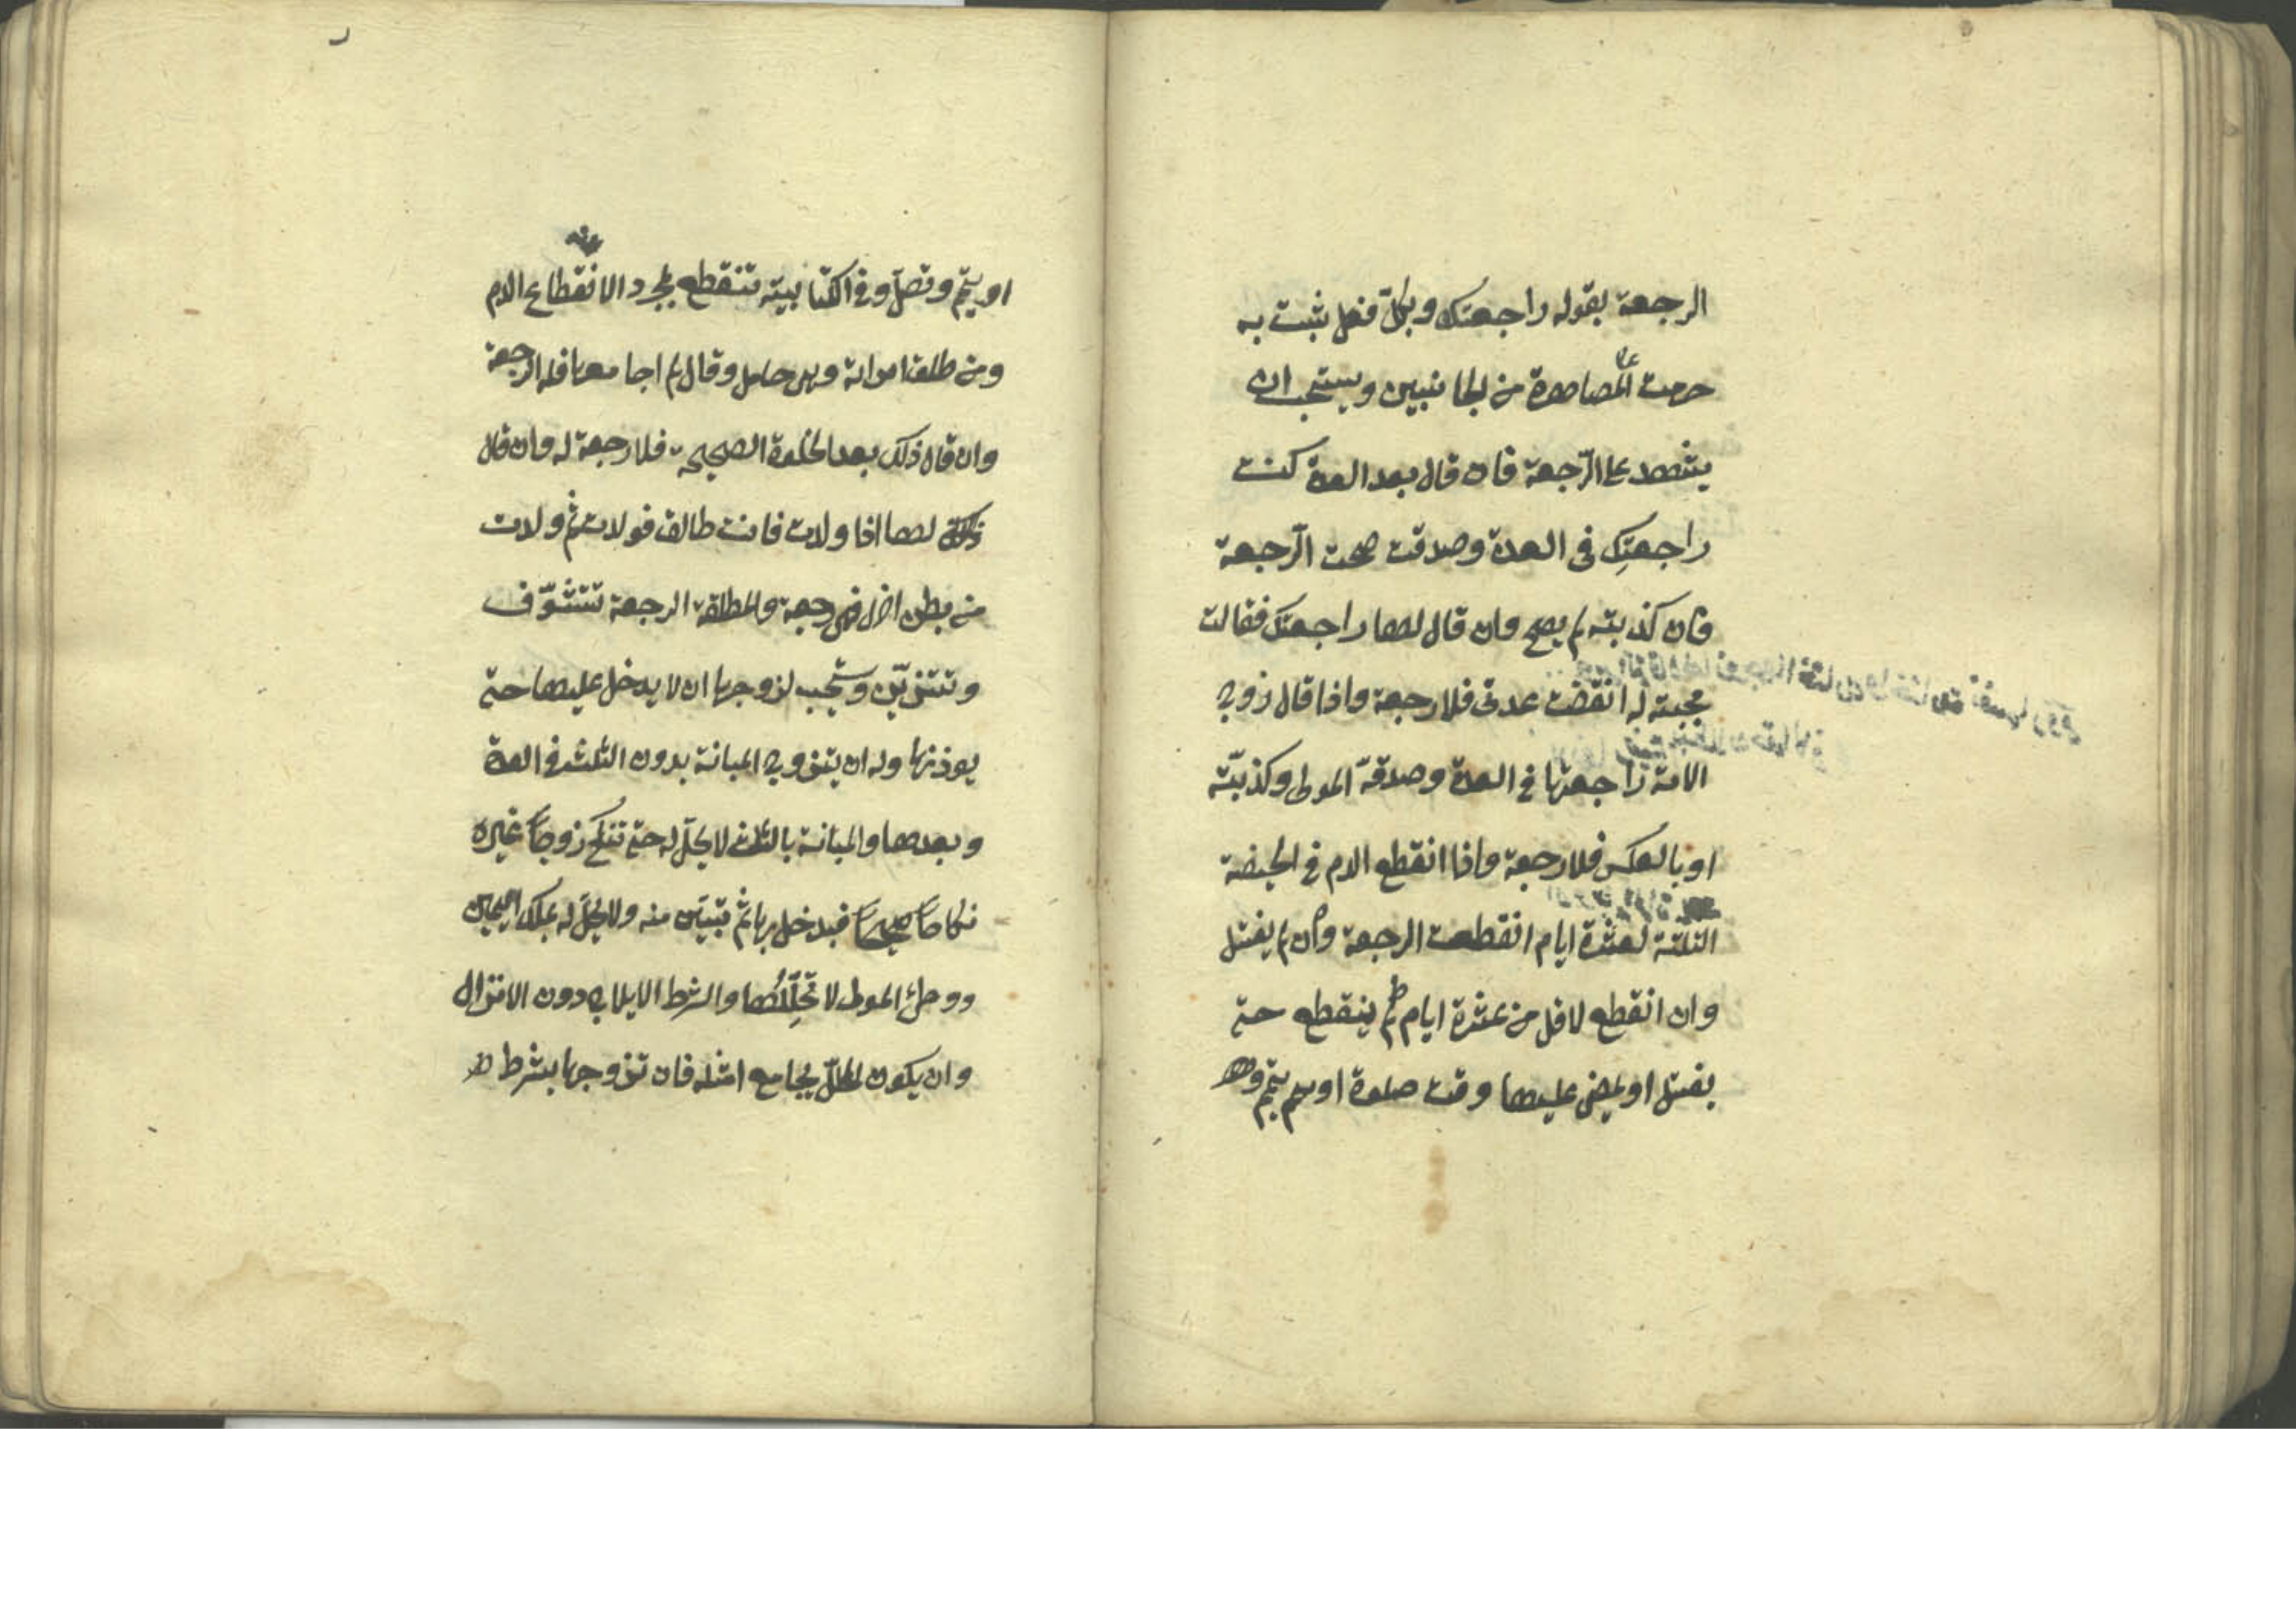 الرجعة بقوله راجعتك وبكل فعل يثبت به
حرمت المصاهرة من الجانبين ويستحب ان
يشهد على الرّجعة فان قال بعد العدة كنت
راجعتكِ في العدة وصدقت صحت الرّجعة
وان كذبته لم يصح وان قال لها راجعتك فقالت
مجيبة له انقضت عدتى فلا رجعة واذا قال زوج
الامة راجعتها في العدة وصدقه المولى وكذبته
او بالعكس فلا رجعة واذا انقطع الدم في الحيضة
الثلثة لعشرة ايام انقطعت الرجعة وان لم يغتسل
وان انقطع لاقل من عشرة ايام لم ينقطع حتى
يغتسل او يمضى عليها وقت صلوة او يتيمم و
او يتيمّم وتصلّ وفي الكتابية تنقطع بمجرد الانقطاع الدم
ومن طلق امراته وهى حامل وقال لم اجامعها فله الرجعة
وان قال ذلك بعد الخلوة الصحيحة فلا رجعة له وان قال
لها اذا ولدت فانت طالق فولدت ثم ولدت
من بطن اخر فهى رجعة والمطلقة الرجعة تتشوّف
وتتزيّن ويستحب لزوجها ان لا يدخل عليها حتى
يوذنها وله ان يتزوج المبانة بدون الثلث في العدة
وبعدها والمبانة بالثلث لا يحلّ له حتى تنكح زوجاً غيره
نكاحاً صحيحاً فيدخل بها ثم تبين منه ولا يحلّ له بملك اليمين
ووطئ المولى لا تحلّلها والشرط الايلاج دون الانزال
وان يكون المحلّل يجامع مثله فان تزوجها بشرط